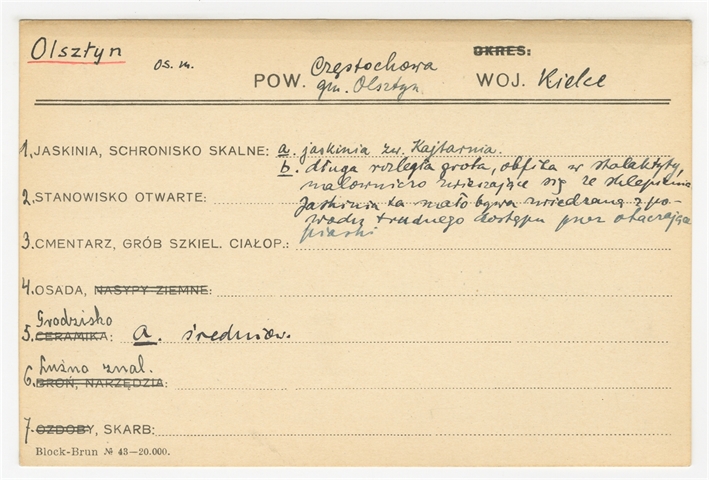 Olsztyn
os. m.
OKRES:
POW. Częstochowa
gm. Olsztyn
WOJ. Kielce
1. JASKINIA, SCHRONISKO SKALNE: a. jaskinia zw. Kajtarnia.
b. długa rozległa grota, obfita w stalaktyty,
malowniczo zwieszające się ze sklepienia
2. STANOWISKO OTWARTE: Jaskinia ta mało bywa zwiedzaną z po-
wodu trudnego dostępu przez otaczające
3. CMENTARZ, GRÓB SZKIEL. CIAŁOP.: piaski
4. OSADA, NASYPY ZIEMNE:
Grodzisko
5. CERAMIKA: a. średniow.
Luźno znal.
6. BROŃ, NARZĘDZIA:
7. OZDOBY, SKARB:
Block-Brun № 43—20.000.